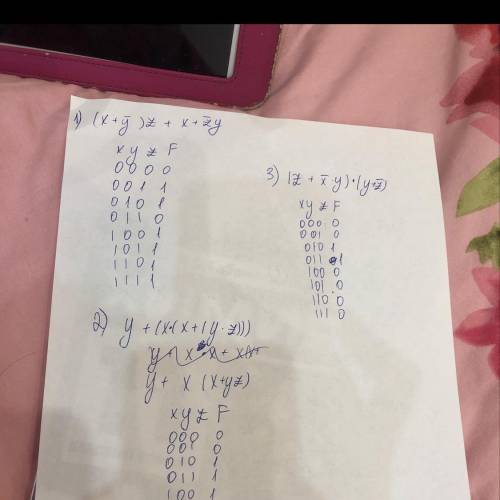 1) (x+ȳ)z + x+z̄y
x y z F
0 0 0 0
0 0 1 1
0 1 0 1
0 1 1 0
1 0 0 1
1 0 1 1
1 1 0 1
1 1 1 1
3) (z + x̄·y)·(y+z̄)
x y z F
0 0 0 0
0 0 1 0
0 1 0 1
0 1 1 1
1 0 0 0
1 0 1 0
1 1 0 0
1 1 1 0
2) y + (x·(x+(y·z)))
y + x (x+yz)
x y z F
0 0 0 0
0 0 1 0
0 1 0 1
0 1 1 1
1 0 0 1